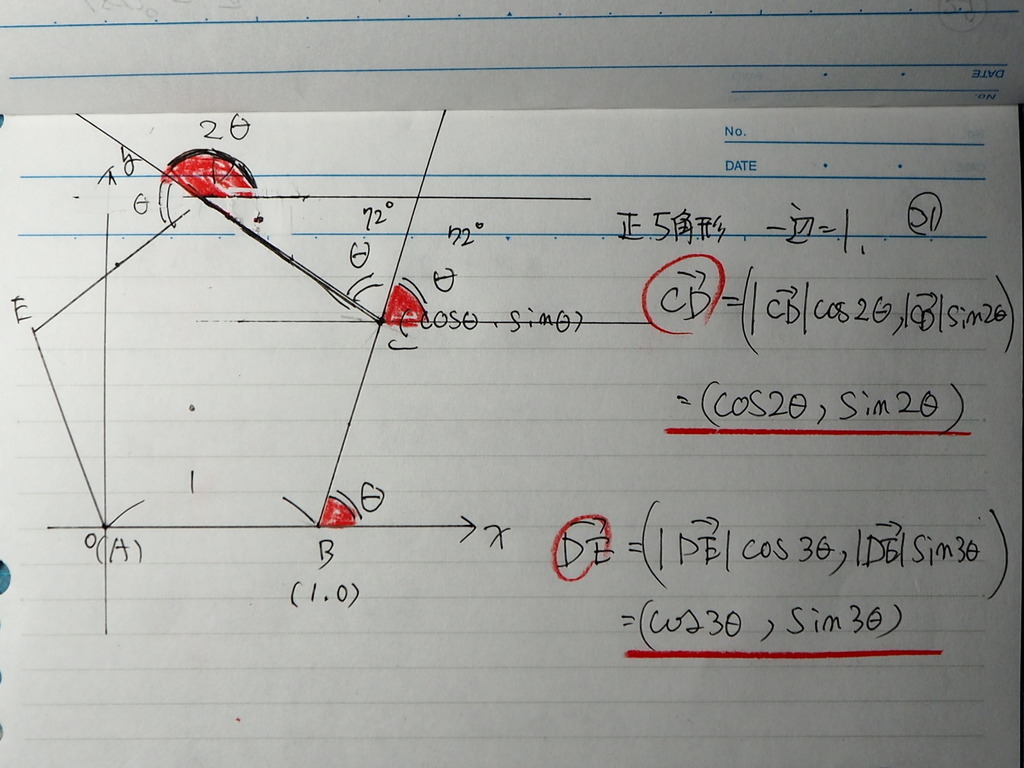 DATE
No.
No.
DATE
2θ
y
θ
72°
72°
θ
θ
E
C (cosθ, sinθ)
1
θ
O(A)
B
x
(1.0)
正5角形 一辺=1. 21
CD=(|CD|cos2θ,|CD|sin2θ)
=(cos2θ, sin2θ)
DE=(|DE|cos3θ,|DE|sin3θ)
=(cos3θ, sin3θ)